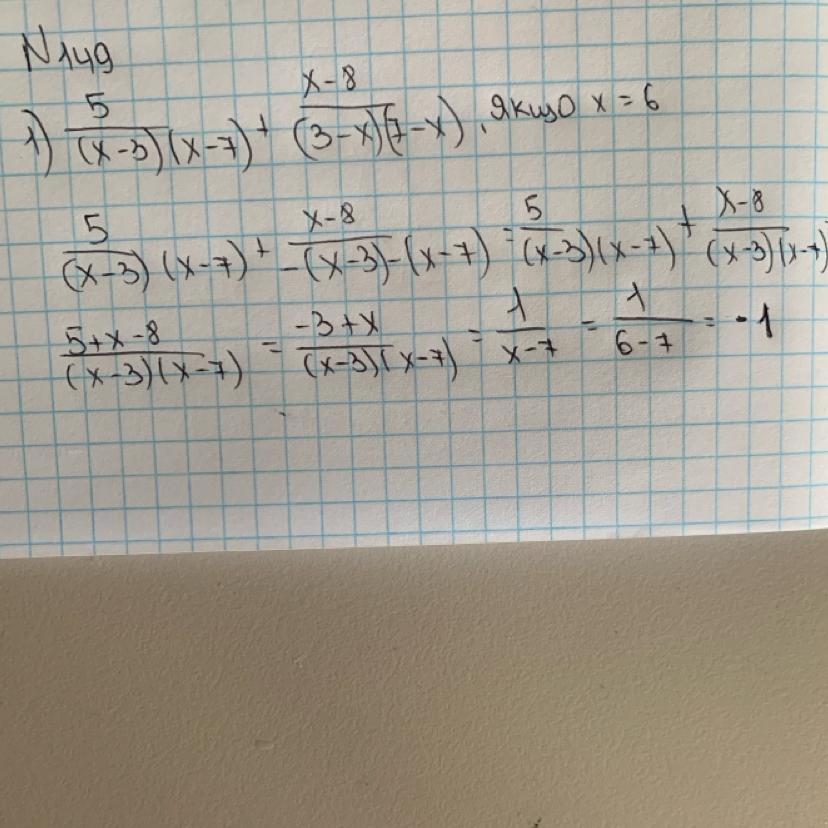 N149
1) 5/(x-3)(x-7) + x-8/(3-x)(7-x), якщо x = 6
5/(x-3)(x-7) + x-8/-(x-3)-(x-7) = 5/(x-3)(x-7) + x-8/(x-3)(x-7)
5+x-8/(x-3)(x-7) = -3+x/(x-3)(x-7) = 1/x-7 = 1/6-7 = -1